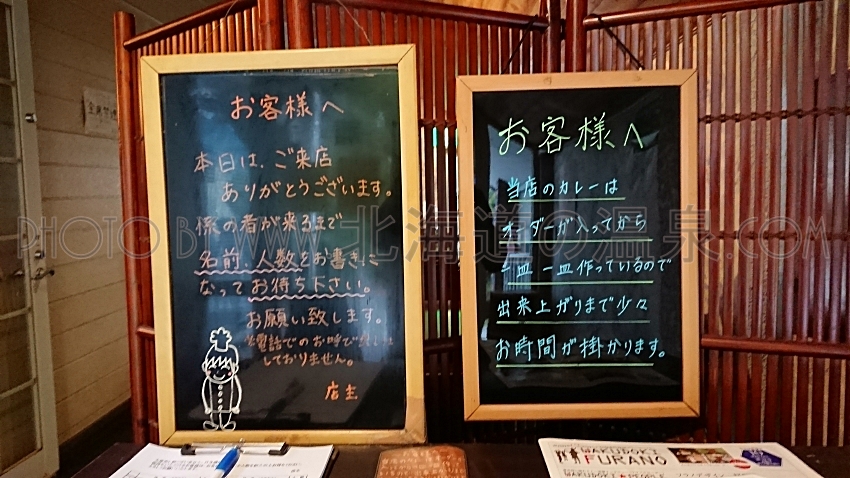 お客様へ
本日は、ご来店
ありがとうございます。
係の者が来るまで
名前、人数をお書きに
なってお待ち下さい。
お願い致します。
※電話でのお呼び出しは
しておりません。
店主
お客様へ
当店のカレーは
オーダーが入ってから
一皿 一皿作っているので
出来上がりまで少々
お時間が掛かります。
WAKUDOKI
FURANO
PHOTO BY WWW.北海道の温泉.COM